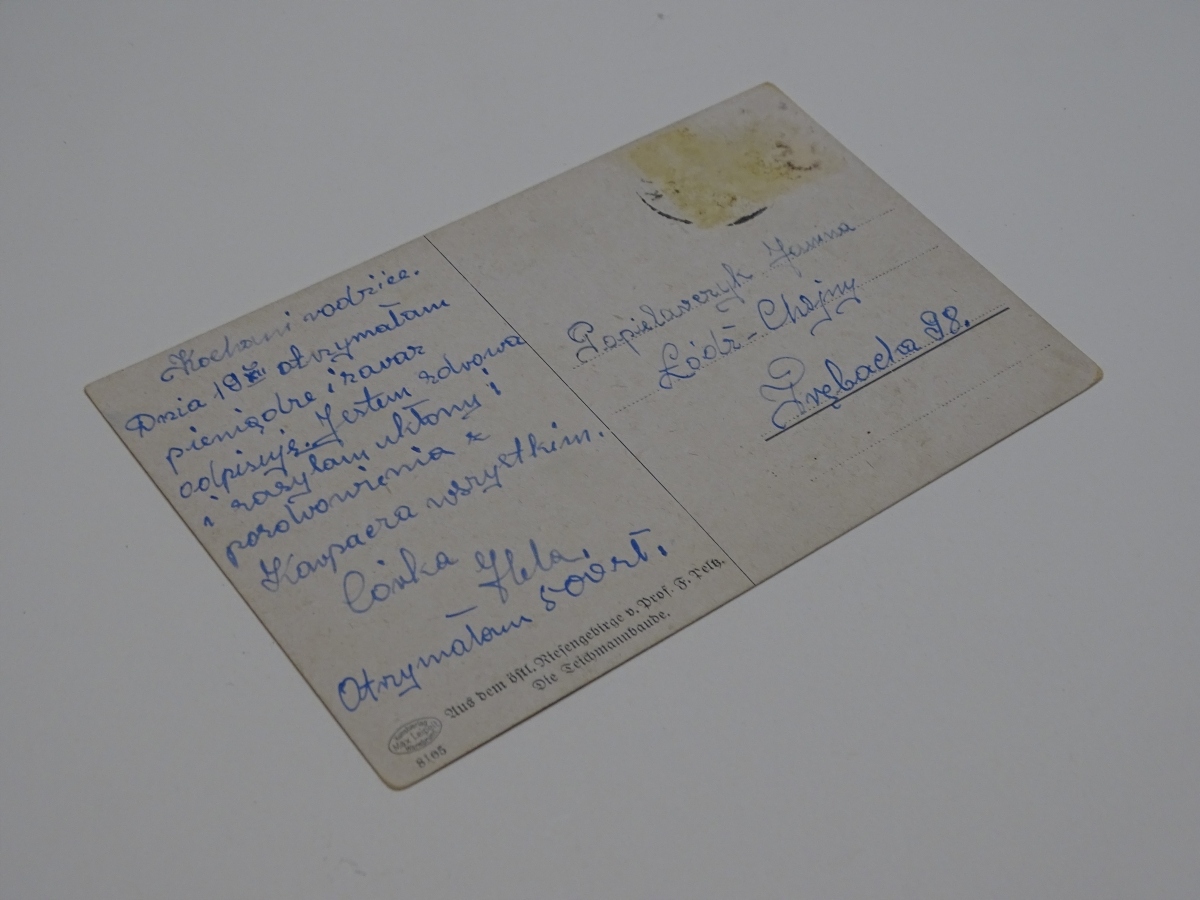 Kochani rodzice.
Dnia 19 XII otrzymałam
pieniądze i zaraz
odpisuję. Jestem zdrowa
i zasyłam ukłony i
pozdrowienia z
Karpacza wszystkim.
Córka Hela.
Otrzymałam 500 zł.
Janina
Łódź-Chojny
98.
Aus dem östl. Riesengebirge v. Prof. F. Pelz.
Die Teichmannbaude.
8165